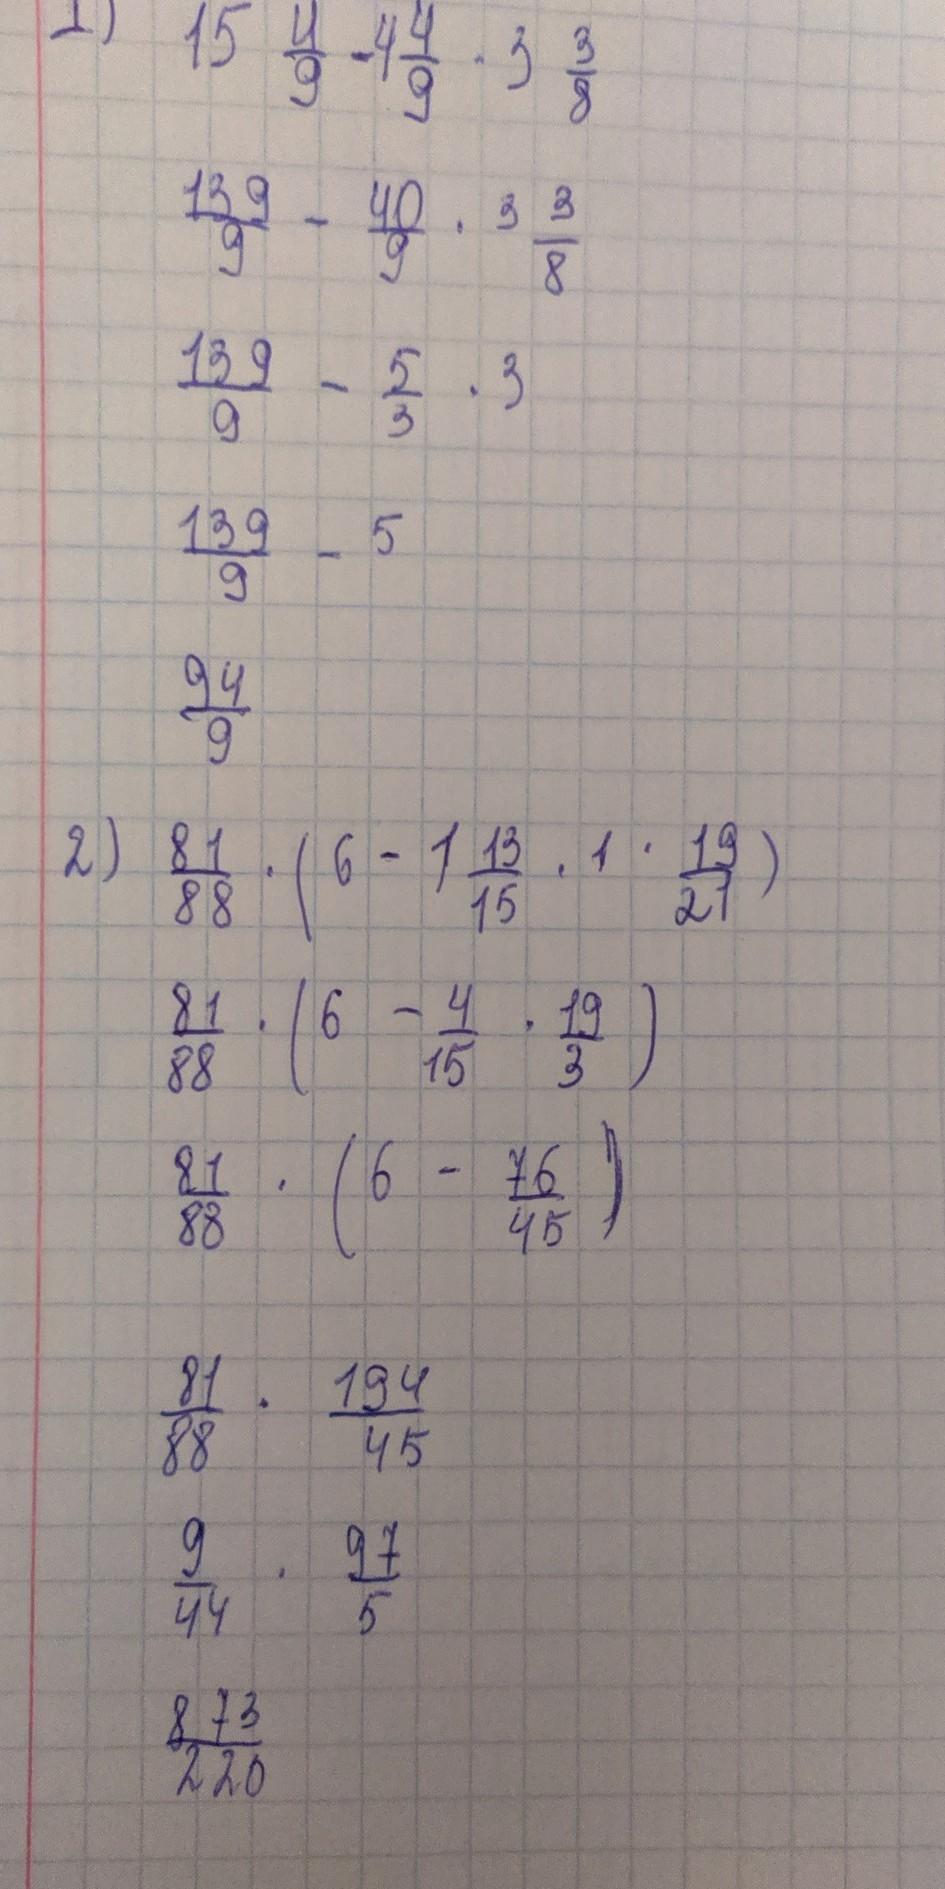 1) 15 4/9 - 4 4/9 · 3 3/8
139/9 - 40/9 · 3 3/8
139/9 - 5/3 · 3
139/9 - 5
94/9
2) 81/88 · (6 - 1 13/15 · 1 · 19/21)
81/88 · (6 - 4/15 · 19/3)
81/88 · (6 - 76/45)
81/88 · 194/45
9/44 · 97/5
873/220